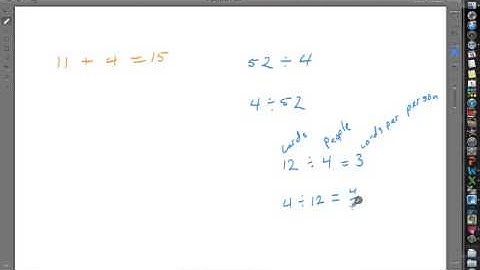 11 + 4 = 15
52 ÷ 4
4 ÷ 52
cards people cards per person
12 ÷ 4 = 3
4 ÷ 12 = 4